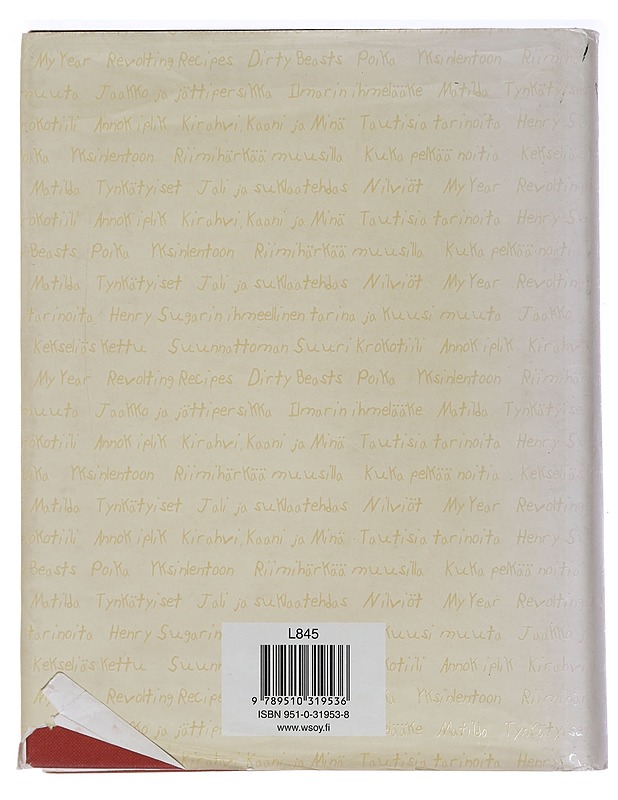 My Year Revolting Recipes Dirty Beasts Poika Yksinlentoon
muuta Jaakko ja jättipersikka Ilmarin ihmelääke Matilda Tynkätyiset
Krokotiili Annok ipliK Kirahvi, Kaani ja Minä Tautisia tarinoita Henry
Yksinlentoon Riimihärkää muusilla Kuka pelkää noitia Kekseliäs
Matilda Tynkätyiset Jali ja suklaatehdas Nilviöt My Year Revolting
Krokotiili Annok ipliK Kirahvi, Kaani ja Minä Tautisia tarinoita Henry
Beasts Poika Yksinlentoon Riimihärkää muusilla Kuka pelkää noitia
Matilda Tynkätyiset Jali ja suklaatehdas Nilviöt My Year Revolting
tarinoita Henry Sugarin ihmeellinen tarina ja kuusi muuta Jaakko
Kekseliäs Kettu Suunnattoman Suuri Krokotiili Annok ipliK Kirahvi
My Year Revolting Recipes Dirty Beasts Poika Yksinlentoon
muuta Jaakko ja jättipersikka Ilmarin ihmelääke Matilda Tynkätyiset
Krokotiili Annok ipliK Kirahvi, Kaani ja Minä Tautisia tarinoita Henry
Yksinlentoon Riimihärkää muusilla Kuka pelkää noitia Kekseliäs
Matilda Tynkätyiset Jali ja suklaatehdas Nilviöt My Year Revolting
Krokotiili Annok ipliK Kirahvi, Kaani ja Minä Tautisia tarinoita Henry
Beasts Poika Yksinlentoon Riimihärkää muusilla Kuka pelkää noitia
Matilda Tynkätyiset Jali ja suklaatehdas Nilviöt My Year Revolting
tarinoita Henry Sugarin kuusi muuta Jaakko ja
L845
Kekseliäs Kettu Annok ipliK Kirahvi
9 789510 319536
My Revolting Poika Yksinlentoon
ISBN 951-0-31953-8
www.wsoy.fi
Matilda Tynkätyiset
Kaani ja Minä Tautisia tarinoita